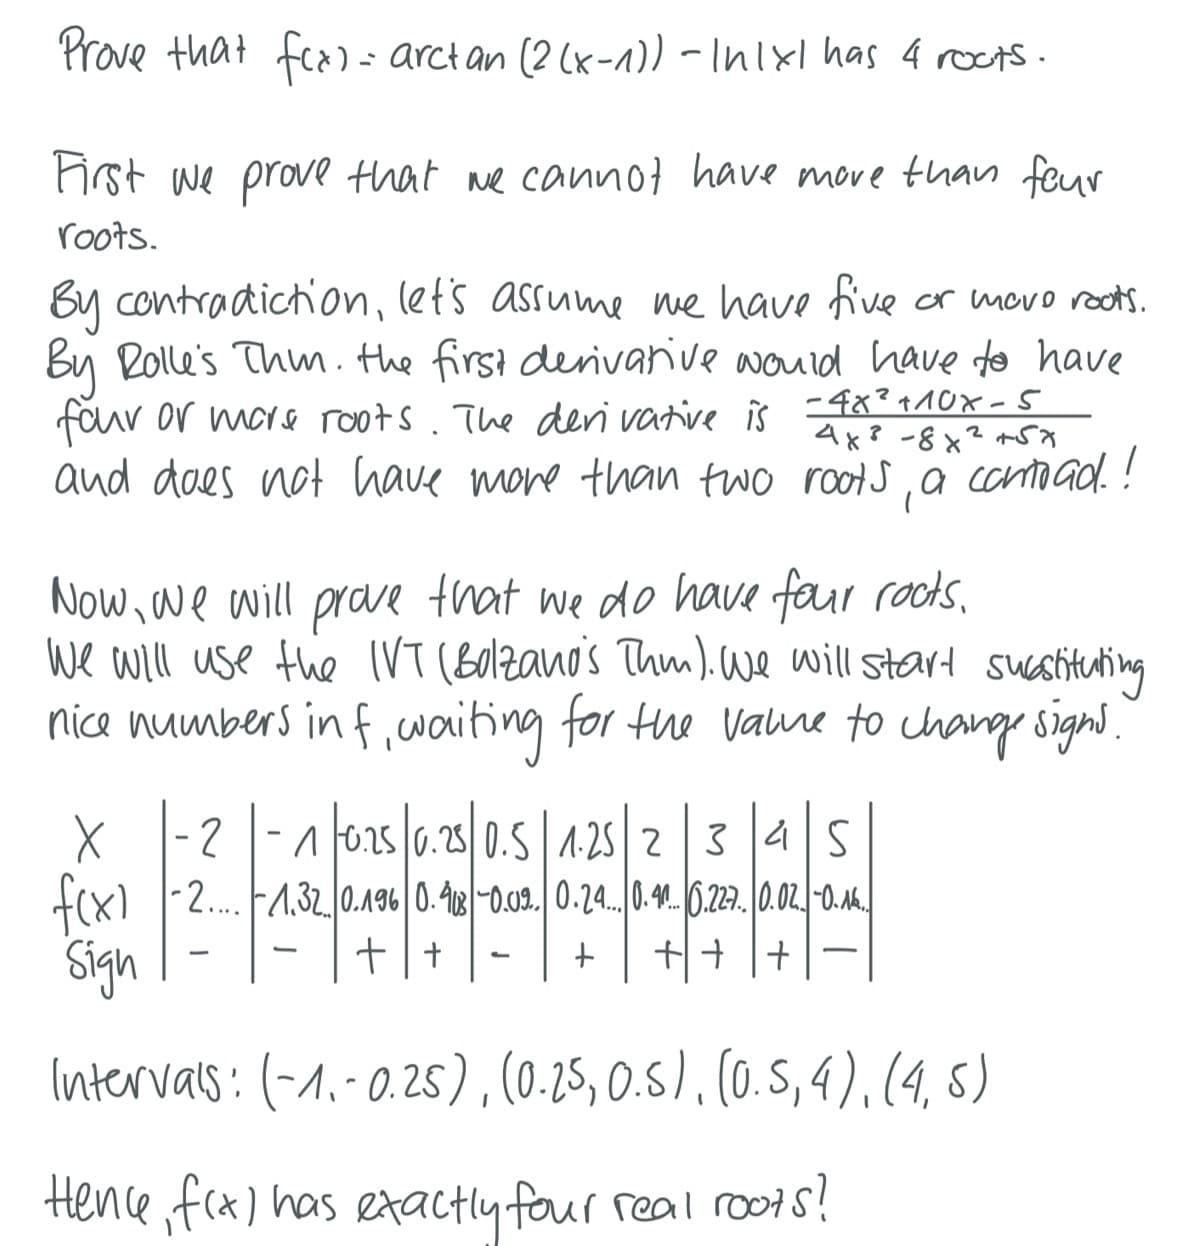 Prove that f(x) = arctan (2(x-1)) - ln|x| has 4 roots.
First we prove that we cannot have more than four
roots.
By contradiction, let's assume we have five or more roots.
By Rolle's Thm. the first derivative would have to have
four or more roots. The derivative is (-4x²+10x-5)/(4x³-8x²+5x)
and does not have more than two roots, a contrad.!
Now, we will prove that we do have four roots.
We will use the IVT (Bolzano's Thm). We will start substituting
nice numbers in f, waiting for the value to change signs.
X | -2 | -1 | -0.25 | 0.25 | 0.5 | 1.25 | 2 | 3 | 4 | 5 |
f(x) | -2.... | -1.32.. | 0.196 | 0.403 | -0.09.. | 0.24... | 0.41... | 0.227.. | 0.02.. | -0.16.. |
Sign | - | - | + | + | - | + | + | + | + | - |
Intervals: (-1, -0.25), (0.25, 0.5), (0.5, 4), (4, 5)
Hence, f(x) has exactly four real roots!